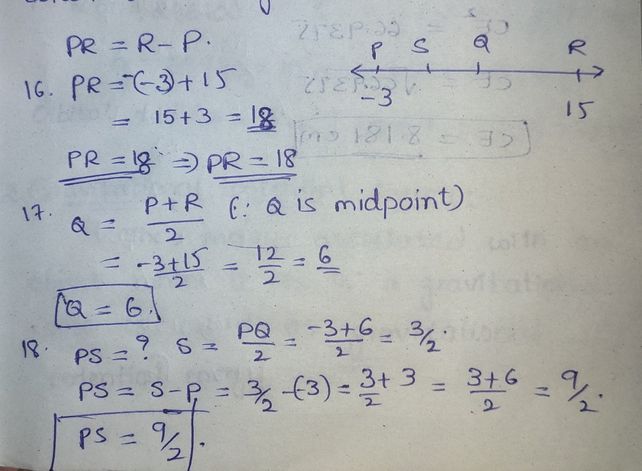 PR = R - P.
P S Q R
-3 15
16. PR = -(-3) + 15
= 15 + 3 = 18
PR = 18 ⇒ PR = 18
17. Q = P+R/2 (∵ Q is midpoint)
= -3+15/2 = 12/2 = 6
Q = 6.
18. PS = ? S = PQ/2 = -3+6/2 = 3/2.
PS = S - P = 3/2 - (-3) = 3/2 + 3 = 3+6/2 = 9/2.
PS = 9/2.